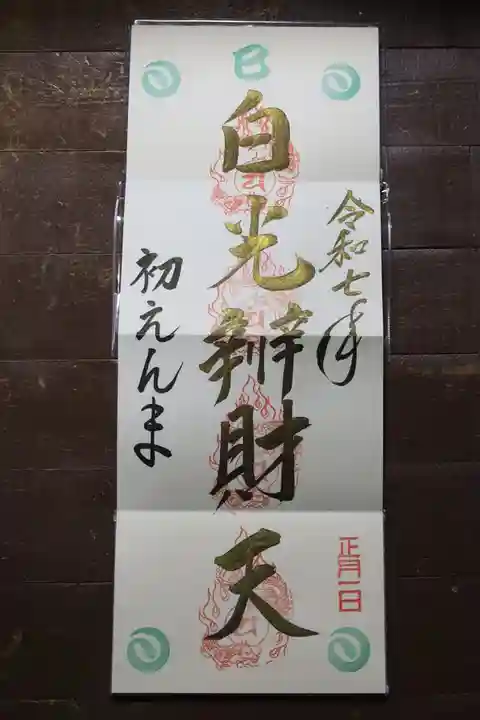 巳
令和七年
正月一日
白光辨財天
初えんま